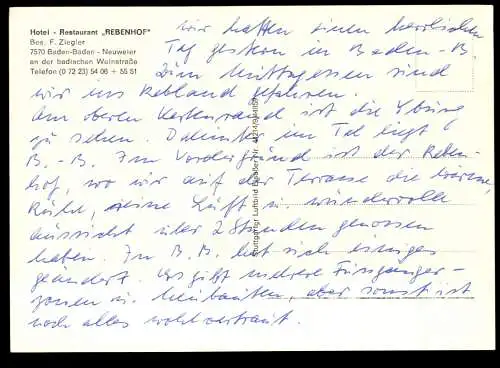 Hotel - Restaurant „REBENHOF"
Bes. F. Ziegler
7570 Baden-Baden - Neuweier
an der badischen Weinstraße
Telefon (0 72 23) 54 06 + 55 51
wir hatten einen herrlichen
Tag gestern in Baden-B.
Zum Mittagessen sind
wir ins Rebland gefahren.
Am oberen Kartenrand ist die Yburg
zu sehen. Dahinter im Tal liegt
B.-B. Im Vordergrund ist der Reben-
hof, wo wir auf der Terrasse die
Luft u. wundervolle
Aussicht über 2 Stunden genossen
haben. In B.B. hat sich einiges
geändert. Es gibt mehrere Fussgänger-
zonen u. Neubauten, aber sonst ist
noch alles wohlvertraut.
Stuttgarter Luftbild Elsäßer